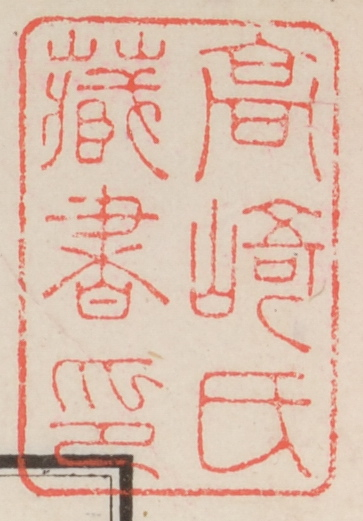 高崎氏
藏書印